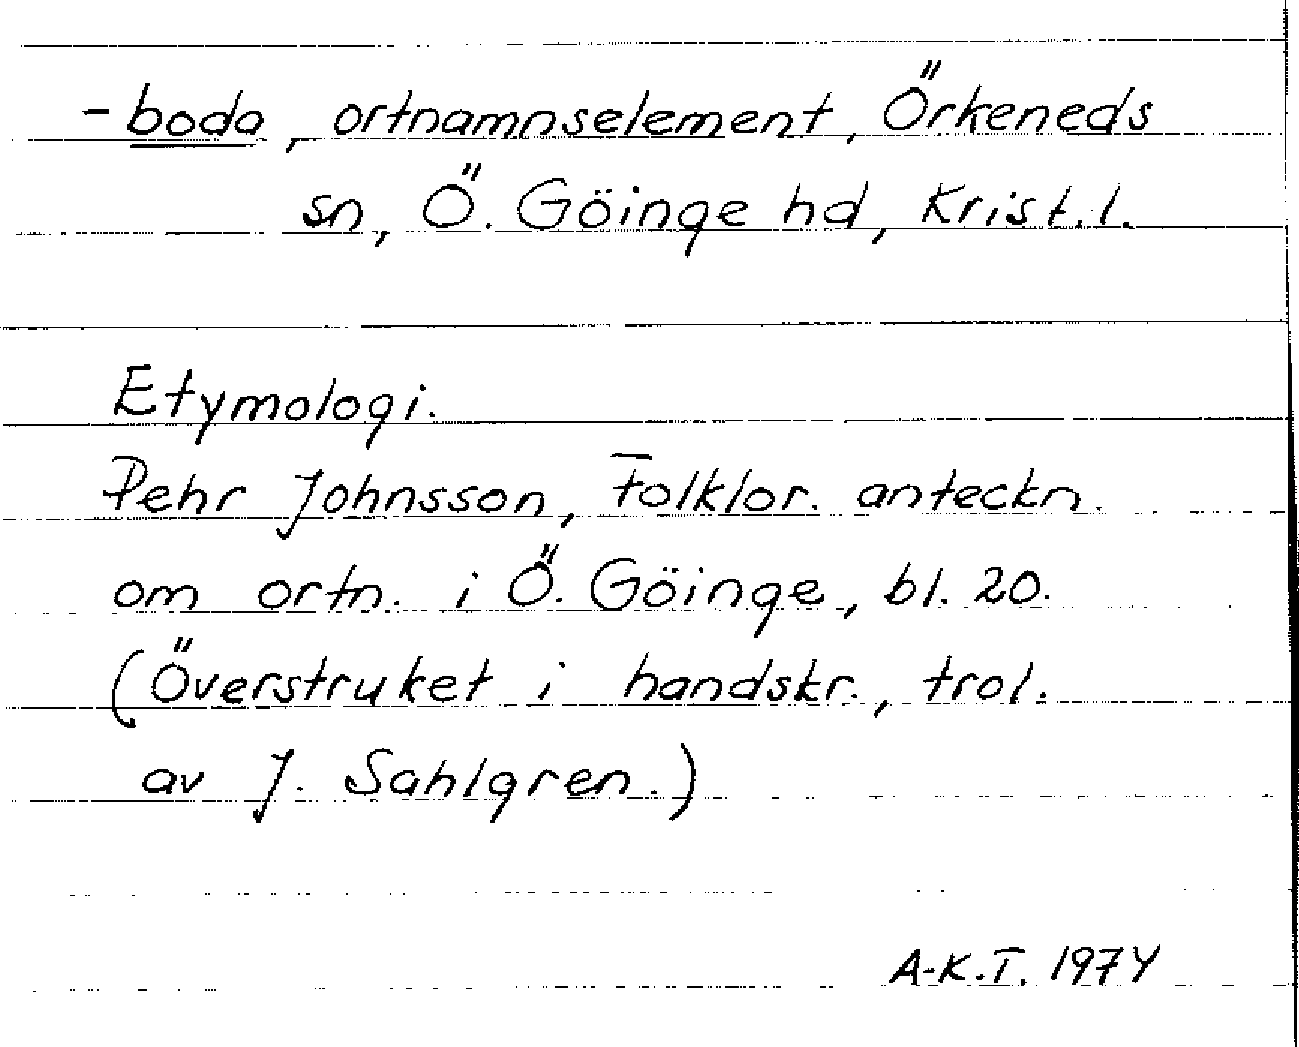 -boda, ortnamnselement, Örkeneds
sn, Ö. Göinge hd, Krist.l.
Etymologi.
Pehr Johnsson, Folklor. anteckn.
om ortn. i Ö. Göinge, bl. 20.
(Överstruket i handskr., trol.
av J. Sahlgren.)
A-K.T. 1974